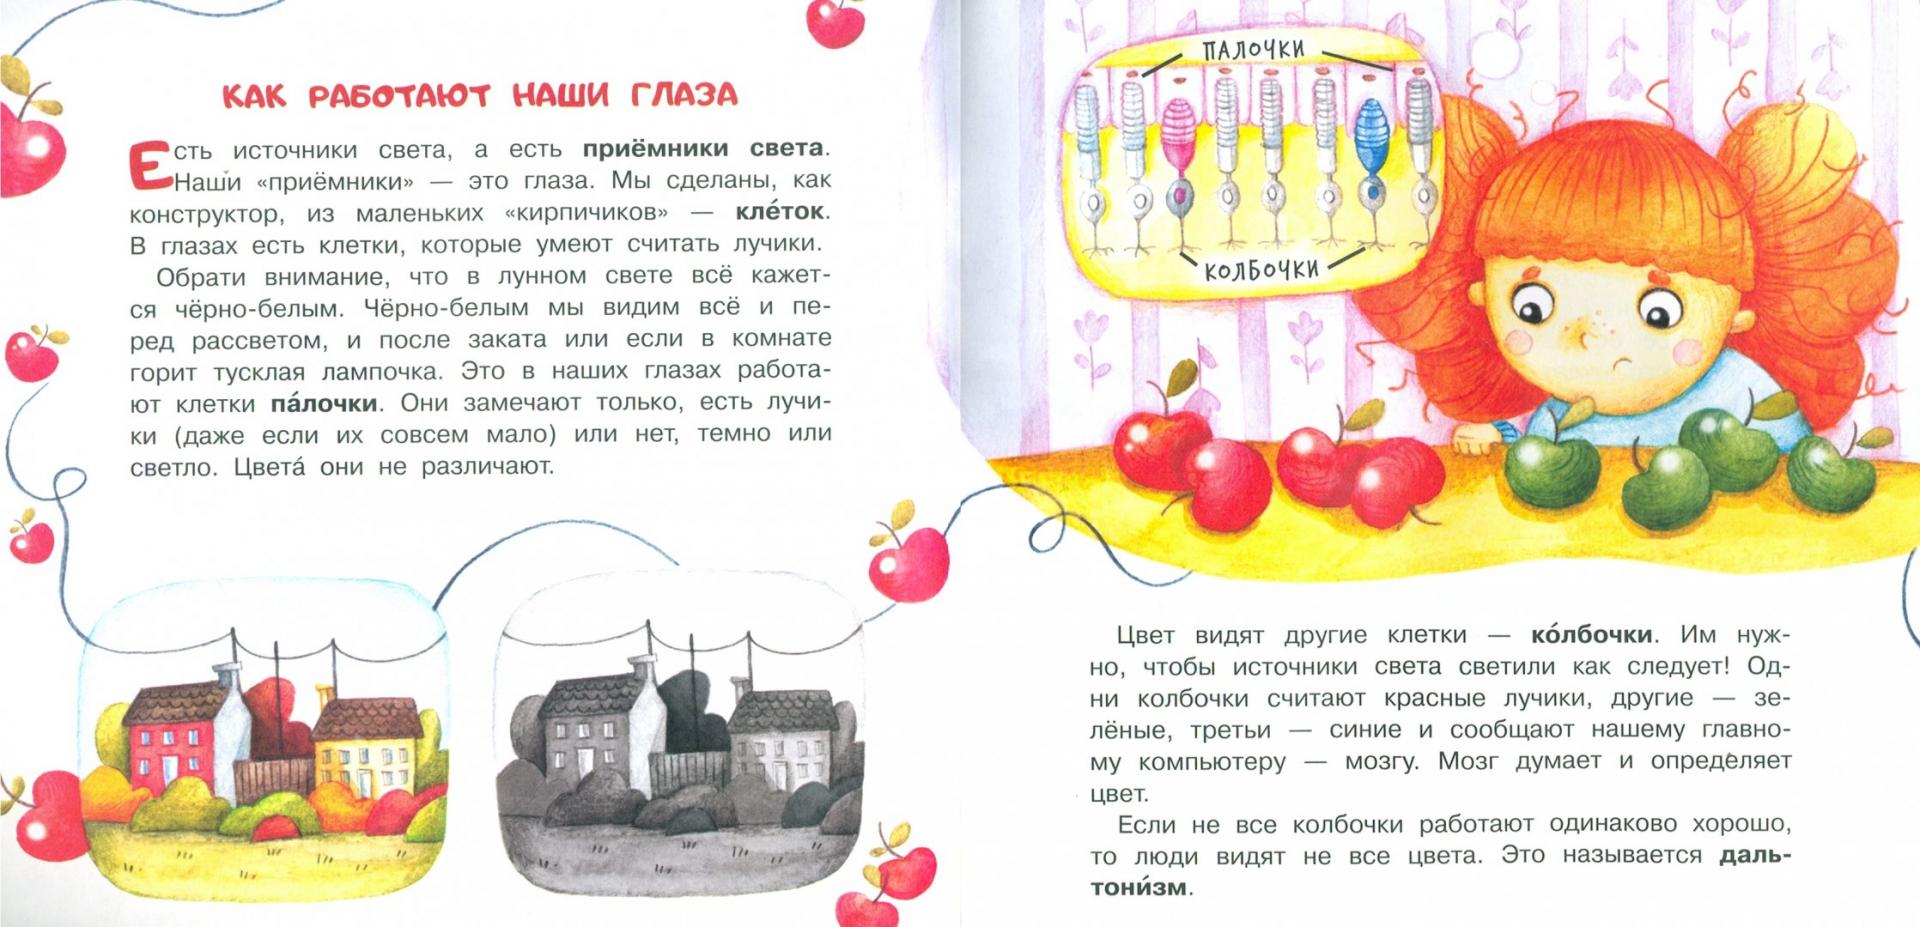 КАК РАБОТАЮТ НАШИ ГЛАЗА
Есть источники света, а есть приёмники света.
Наши «приёмники» — это глаза. Мы сделаны, как
конструктор, из маленьких «кирпичиков» — кле́ток.
В глазах есть клетки, которые умеют считать лучики.
Обрати внимание, что в лунном свете всё кажет-
ся чёрно-белым. Чёрно-белым мы видим всё и пе-
ред рассветом, и после заката или если в комнате
горит тусклая лампочка. Это в наших глазах работа-
ют клетки па́лочки. Они замечают только, есть лучи-
ки (даже если их совсем мало) или нет, темно или
светло. Цвета́ они не различают.
ПАЛОЧКИ
КОЛБОЧКИ
Цвет видят другие клетки — ко́лбочки. Им нуж-
но, чтобы источники света светили как следует! Од-
ни колбочки считают красные лучики, другие — зе-
лёные, третьи — синие и сообщают нашему главно-
му компьютеру — мозгу. Мозг думает и определяет
цвет.
Если не все колбочки работают одинаково хорошо,
то люди видят не все цвета. Это называется даль-
тони́зм.